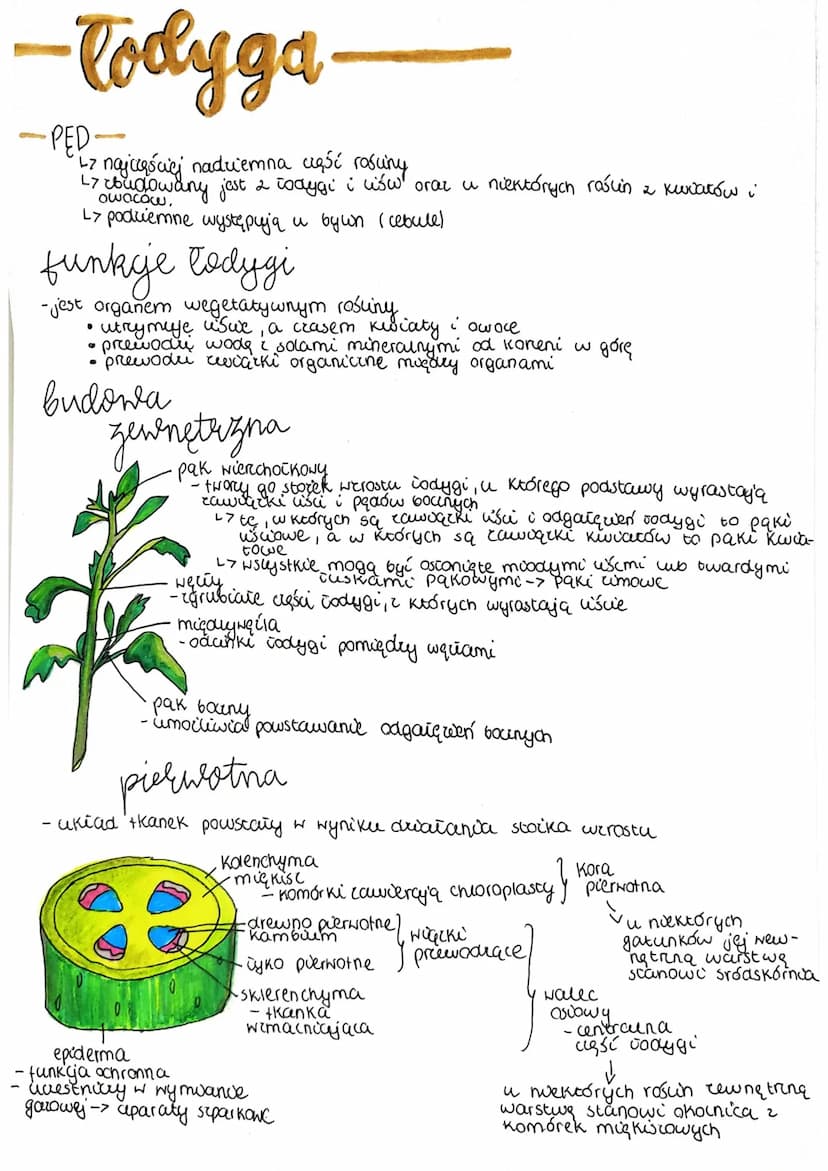 łodyga
PĘD
↳ najczęściej nadziemna część rośliny
↳ zbudowany jest z łodygi i liści oraz u niektórych roślin z kwiatów i
owoców.
↳ podziemne występują u bylin (cebule)
funkcje łodygi
- jest organem wegetatywnym rośliny
• utrzymuje liście, a czasem kwiaty i owoce
• przewodzi wodę z solami mineralnymi od korzeni w górę
• przewodzi związki organiczne między organami
budowa
zewnętrzna
pąk wierzchołkowy
- tworzy go stożek wzrostu łodygi, u którego podstawy wyrastają
zawiązki liści i pędów bocznych
↳ te, w których są zawiązki liści i odgałęzień łodygi to pąki
liściowe, a w których są zawiązki kwiatów to pąki kwia-
towe
↳ wszystkie mogą być osłonięte młodymi liśćmi lub twardymi
łuskami pąkowymi → pąki zimowe
węzły
- zgrubiałe części łodygi, z których wyrastają liście
międzywęźla
- odcinki łodygi pomiędzy węzłami
pąk boczny
- umożliwia powstawanie odgałęzień bocznych
pierwotna
- układ tkanek powstały w wyniku działania stożka wzrostu
kolenchyma
miękisz
- komórki zawierają chloroplasty
kora
pierwotna
↳ u niektórych
gatunków jej wew-
nętrzną warstwę
stanowi śródskórnia
drewno pierwotne
kambium
łyko pierwotne
wiązki
przewodzące
sklerenchyma
- tkanka
wzmacniająca
walec
osiowy
- centralna
część łodygi
↓
u niektórych roślin zewnętrzną
warstwę stanowi okolnica z
komórek miękiszowych
epiderma
- funkcja ochronna
- uczestniczy w wymianie
gazowej → aparaty szparkowe